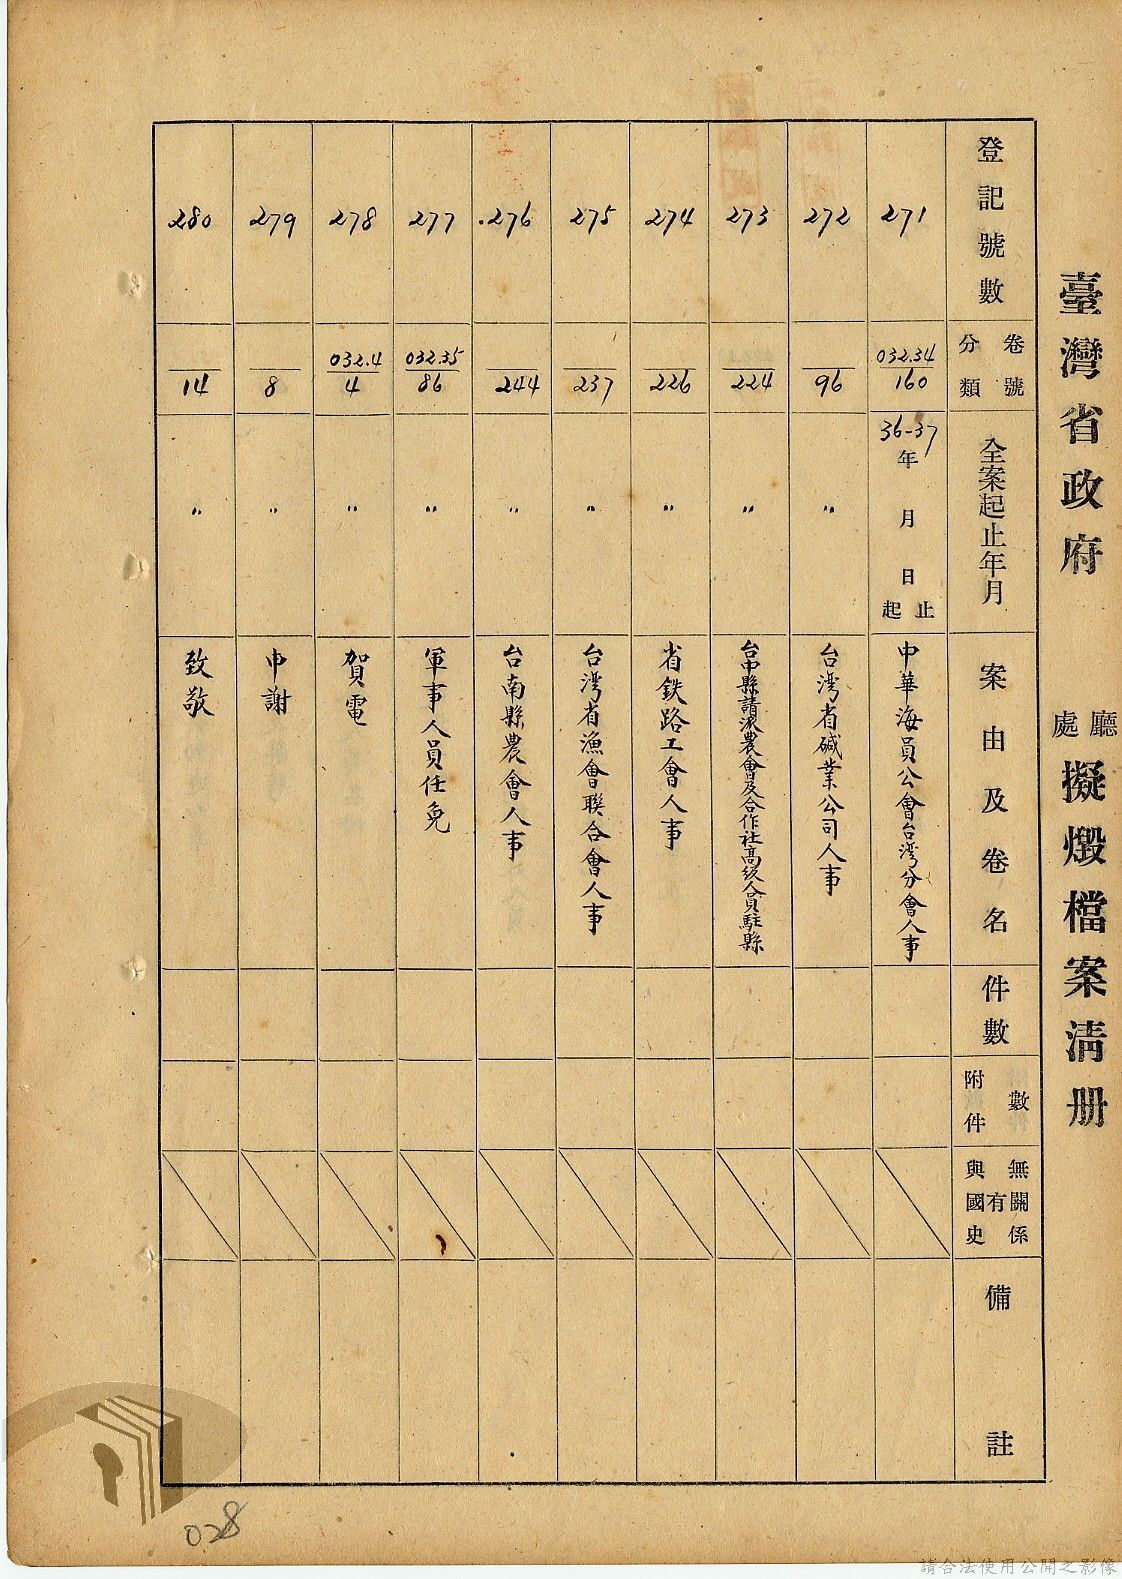 臺灣省政府 廳處擬燬檔案清册
登記號數
分類 卷號
全案起止年月
案由及卷名
件數
附件數
與國史有無關係
備註
271
032.34
160
36-37年 月 日起止
中華海員公會台湾分會人事
272
96
〃
台湾省碱業公司人事
273
224
〃
台中縣請派農會及合作社高級人員駐縣
274
226
〃
省鉄路工會人事
275
237
〃
台湾省漁會聯合會人事
.276
244
〃
台南縣農會人事
277
032.35
86
〃
軍事人員任免
278
032.4
4
〃
賀電
279
8
〃
申謝
280
14
〃
致敬
028
請合法使用公開之影像